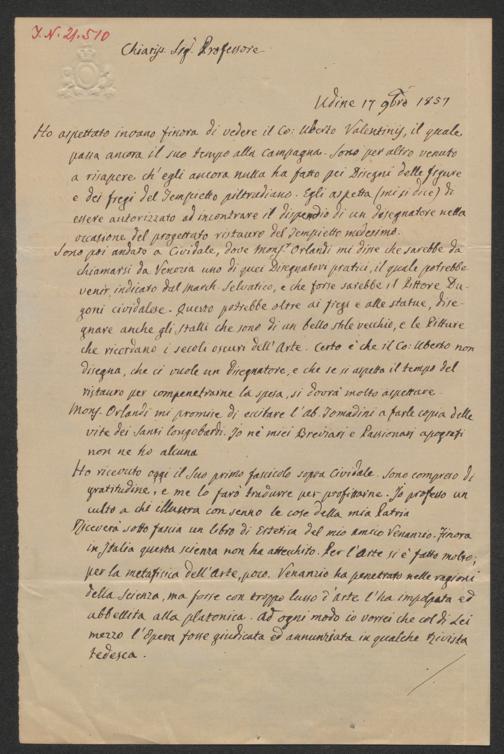 J. N. 21.510
Chiariss. Sigr. Professore
Udine 17 9bre 1857
Ho aspettato invano finora di vedere il Co: Uberto Valentinis, il quale
passa ancora il suo tempo alla campagna. Sono per altro venuto
a risapere ch'egli ancora nulla ha fatto pei Disegni delle figure
e dei fregi del Tempietto piltrudiano. Egli aspetta (mi si dice) di
essere autorizzato ad incontrare il dispendio di un disegnatore nella
occasione del progettato ristauro del Tempietto medesimo.
Sono poi andato a Cividale, dove Monsr. Orlandi mi disse che sarebbe da
chiamarsi da Venezia uno di quei Disegnatori pratici, il quale potrebbe
venir indicato dal march. Selvatico, e che forse sarebbe il Pittore Du-
goni cividalese. Questo potrebbe oltre ai fregi e alle statue, dise-
gnare anche gli stalli che sono di un bello stile vecchio, e le Pitture
che ricordano i secoli oscuri dell'Arte. Certo è che il Co: Uberto non
disegna, che ci vuole un Disegnatore, e che se si aspetta il tempo del
ristauro per compenetrarne la spesa, si dovrà molto aspettare.
Mons. Orlandi mi promise di eccitare l'Ab. Tomadini a farle copia delle
vite dei Santi longobardi. Io nè miei Breviari e Passionari apografi
non ne ho alcuna
Ho ricevuto oggi il Suo primo fascicolo sopra Cividale. Sono compreso di
gratitudine, e me lo farò tradurre per profittarne. Io professo un
culto a chi illustra con senno le cose della mia Patria
Riceverà sotto fascia un libro di Estetica del mio amico Venanzio. Finora
in Italia questa scienza non ha attecchito. Per l'Arte si è fatto molto;
per la metafisica dell'Arte, poco. Venanzio ha penetrato nelle ragioni
della Scienza, ma forse con troppo lusso d'arte l'ha impolpata ed
abbellita alla platonica. Ad ogni modo io vorrei che col di Lei
mezzo l'Opera fosse giudicata ed annunziata in qualche Rivista
tedesca.